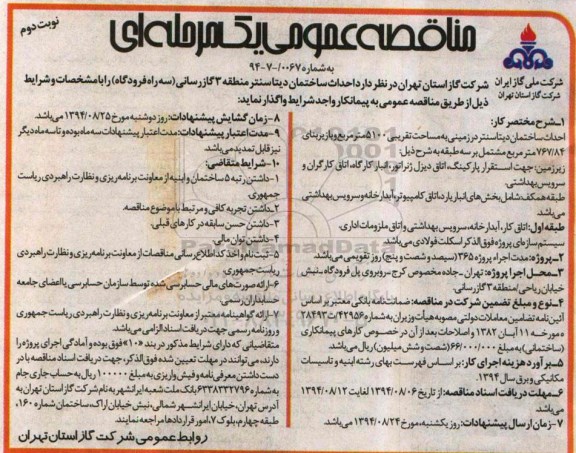 نوبت دوم
مناقصه عمومی یک مرحله ای
به شماره ۰۰۶۷-/۷-۹۴
شرکت ملی گاز ایران
شرکت گاز استان تهران
شرکت گاز استان تهران در نظر دارد احداث ساختمان دیتا سنتر منطقه ۳ گازرسانی (سه راه فرودگاه) را با مشخصات و شرایط
ذیل از طریق مناقصه عمومی به پیمانکار واجد شرایط واگذار نماید:
۱-شرح مختصر کار:
احداث ساختمان دیتا سنتر در زمینی به مساحت تقریبی ۵۱۰۰ متر مربع و با زیربنای
۷۶۷/۸۴ متر مربع مشتمل بر سه طبقه به شرح ذیل:
زیرزمین: جهت استقرار پارکینگ، اتاق دیزل ژنراتور، انبار کارگاه، اتاق کارگران و
سرویس بهداشتی.
طبقه همکف: شامل بخش های انبار یارد، اتاق کامپیوتر، آبدارخانه و سرویس بهداشتی
می باشد.
طبقه اول: اتاق کار، آبدارخانه، سرویس بهداشتی و اتاق ملزومات اداری.
سیستم سازه ای پروژه فوق الذکر اسکلت فولادی می باشد.
۲-پروژه: مدت اجراء پروژه ۳۶۵ (سیصد و شصت و پنج) روز تقویمی می باشد.
۳-محل اجرا پروژه: تهران-جاده مخصوص کرج-روبروی پل فرودگاه-نبش
خیابان ریاحی/منطقه ۳ گازرسانی.
۴-نوع و مبلغ تضمین شرکت در مناقصه: ضمانتنامه بانکی معتبر بر اساس
آئین نامه تضامین معاملات دولتی مصوبه هیأت وزیران به شماره ۴۲۹۵۶/ت۲۸۴۹۳
ه مورخه ۱۱ آبان ۱۳۸۲ و اصلاحات بعد از آن در خصوص کارهای پیمانکاری
(ساختمانی) به مبلغ ۶۶/۰۰۰/۰۰۰ (شصت و شش میلیون) ریال می باشد.
۵-برآورد هزینه اجرای کار: بر اساس فهرست بهای رشته ابنیه و تاسیسات
مکانیکی و برق سال ۱۳۹۴.
۶-مهلت دریافت اسناد مناقصه: از تاریخ ۱۳۹۴/۰۸/۰۶ لغایت ۱۳۹۴/۰۸/۱۲
۷-زمان ارسال پیشنهادات: روز یکشنبه، مورخ ۱۳۹۴/۰۸/۲۴ می باشد.
۸-زمان گشایش پیشنهادات: روز دوشنبه مورخ ۱۳۹۴/۰۸/۲۵ می باشد.
۹-مدت اعتبار پیشنهادات: مدت اعتبار پیشنهادات سه ماه بوده و تا سه ماه دیگر
نیز قابل تمدید می باشد.
۱۰-شرایط متقاضی:
۱-داشتن رتبه ۵ ساختمان و ابنیه از معاونت برنامه ریزی و نظارت راهبردی ریاست
جمهوری
۲-داشتن تجربه کافی و مرتبط با موضوع مناقصه.
۳-داشتن حسن سابقه در کارهای قبلی.
۴-داشتن توان مالی
۵-ثبت نام و اخذ کد اطلاع رسانی مناقصات از معاونت برنامه ریزی و نظارت راهبردی
ریاست جمهوری
۶-ارائه صورت های مالی حسابرسی شده توسط سازمان حسابرسی یا اعضای جامعه
حسابداران رسمی
۷-ارائه گواهینامه معتبر از معاونت برنامه ریزی و نظارت راهبردی ریاست جمهوری
و روزنامه رسمی جهت دریافت اسناد الزامی می باشد.
متقاضیانی که دارای شرایط مذکور در بند ۱۰ه فوق بوده و آمادگی اجرای پروژه را
دارند، می توانند در مهلت تعیین شده فوق الذکر، جهت دریافت اسناد مناقصه با در
دست داشتن معرفی نامه و فیش واریزی به مبلغ ۱۰۰۰۰۰۰ ریال به حساب جاری جام
به شماره ۶۳۳۸۳۳۲۷۹۶ بانک ملت شعبه ایرانشهر به نام شرکت گاز استان تهران به
آدرس تهران، خیابان ایرانشهر شمالی، نبش خیابان اراک، ساختمان شماره ۱۶۰،
طبقه چهارم، بلوک ۷، امور قراردادها مراجعه نمایند.
روابط عمومی شرکت گاز استان تهران